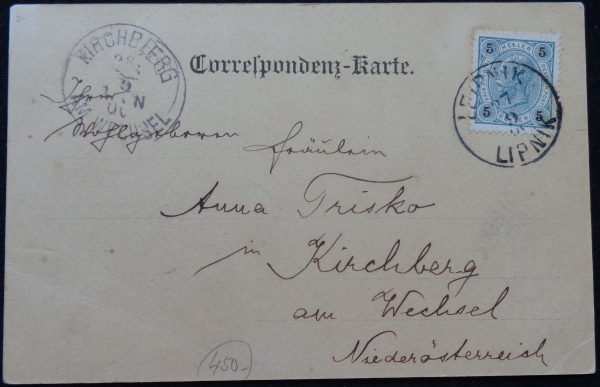 Correspondenz-Karte.
KIRCHBERG
AM WECHSEL
5 HELLER 5
5 HELLER 5
LEIPNIK
LIPNIK
Ihrer
Wohlgeboren
Fräulein
Anna Trisko
in Kirchberg
am Wechsel
Niederösterreich
450-